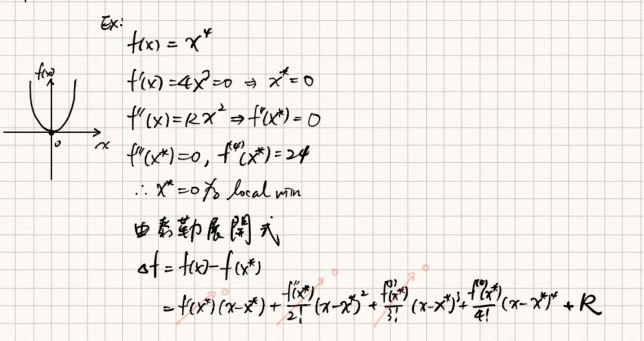 Ex:
f(x) = x⁴
f'(x) = 4x³ = 0 ⇒ x* = 0
f''(x) = 12x² ⇒ f''(x*) = 0
f'''(x*) = 0, f⁽⁴⁾(x*) = 24
∴ x* = 0 為 local min
f(x)
0
x
由泰勒展開式
Δf = f(x) - f(x*)
= f'(x*)(x-x*) + f''(x*)/2! (x-x*)² + f⁽³⁾(x*)/3! (x-x*)³ + f⁽⁴⁾(x*)/4! (x-x*)⁴ + R
0 0 0